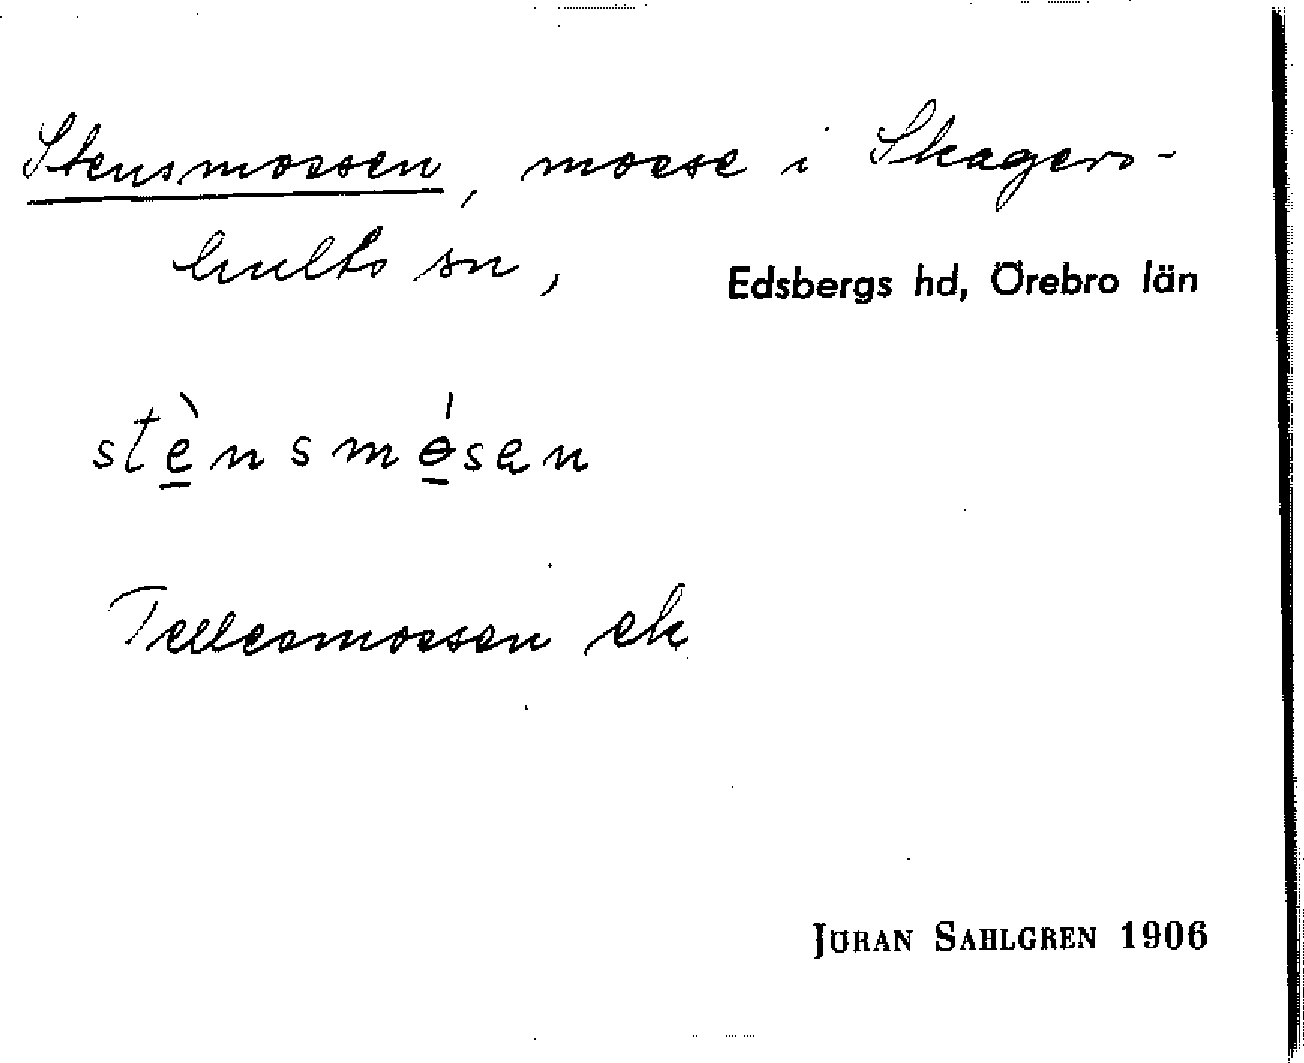 Stensmossen, mosse i Skagers-
hults sn, Edsbergs hd, Örebro län
stè̱nsmɵ̱́sen
Tellesmossen ek
JÖRAN SAHLGREN 1906